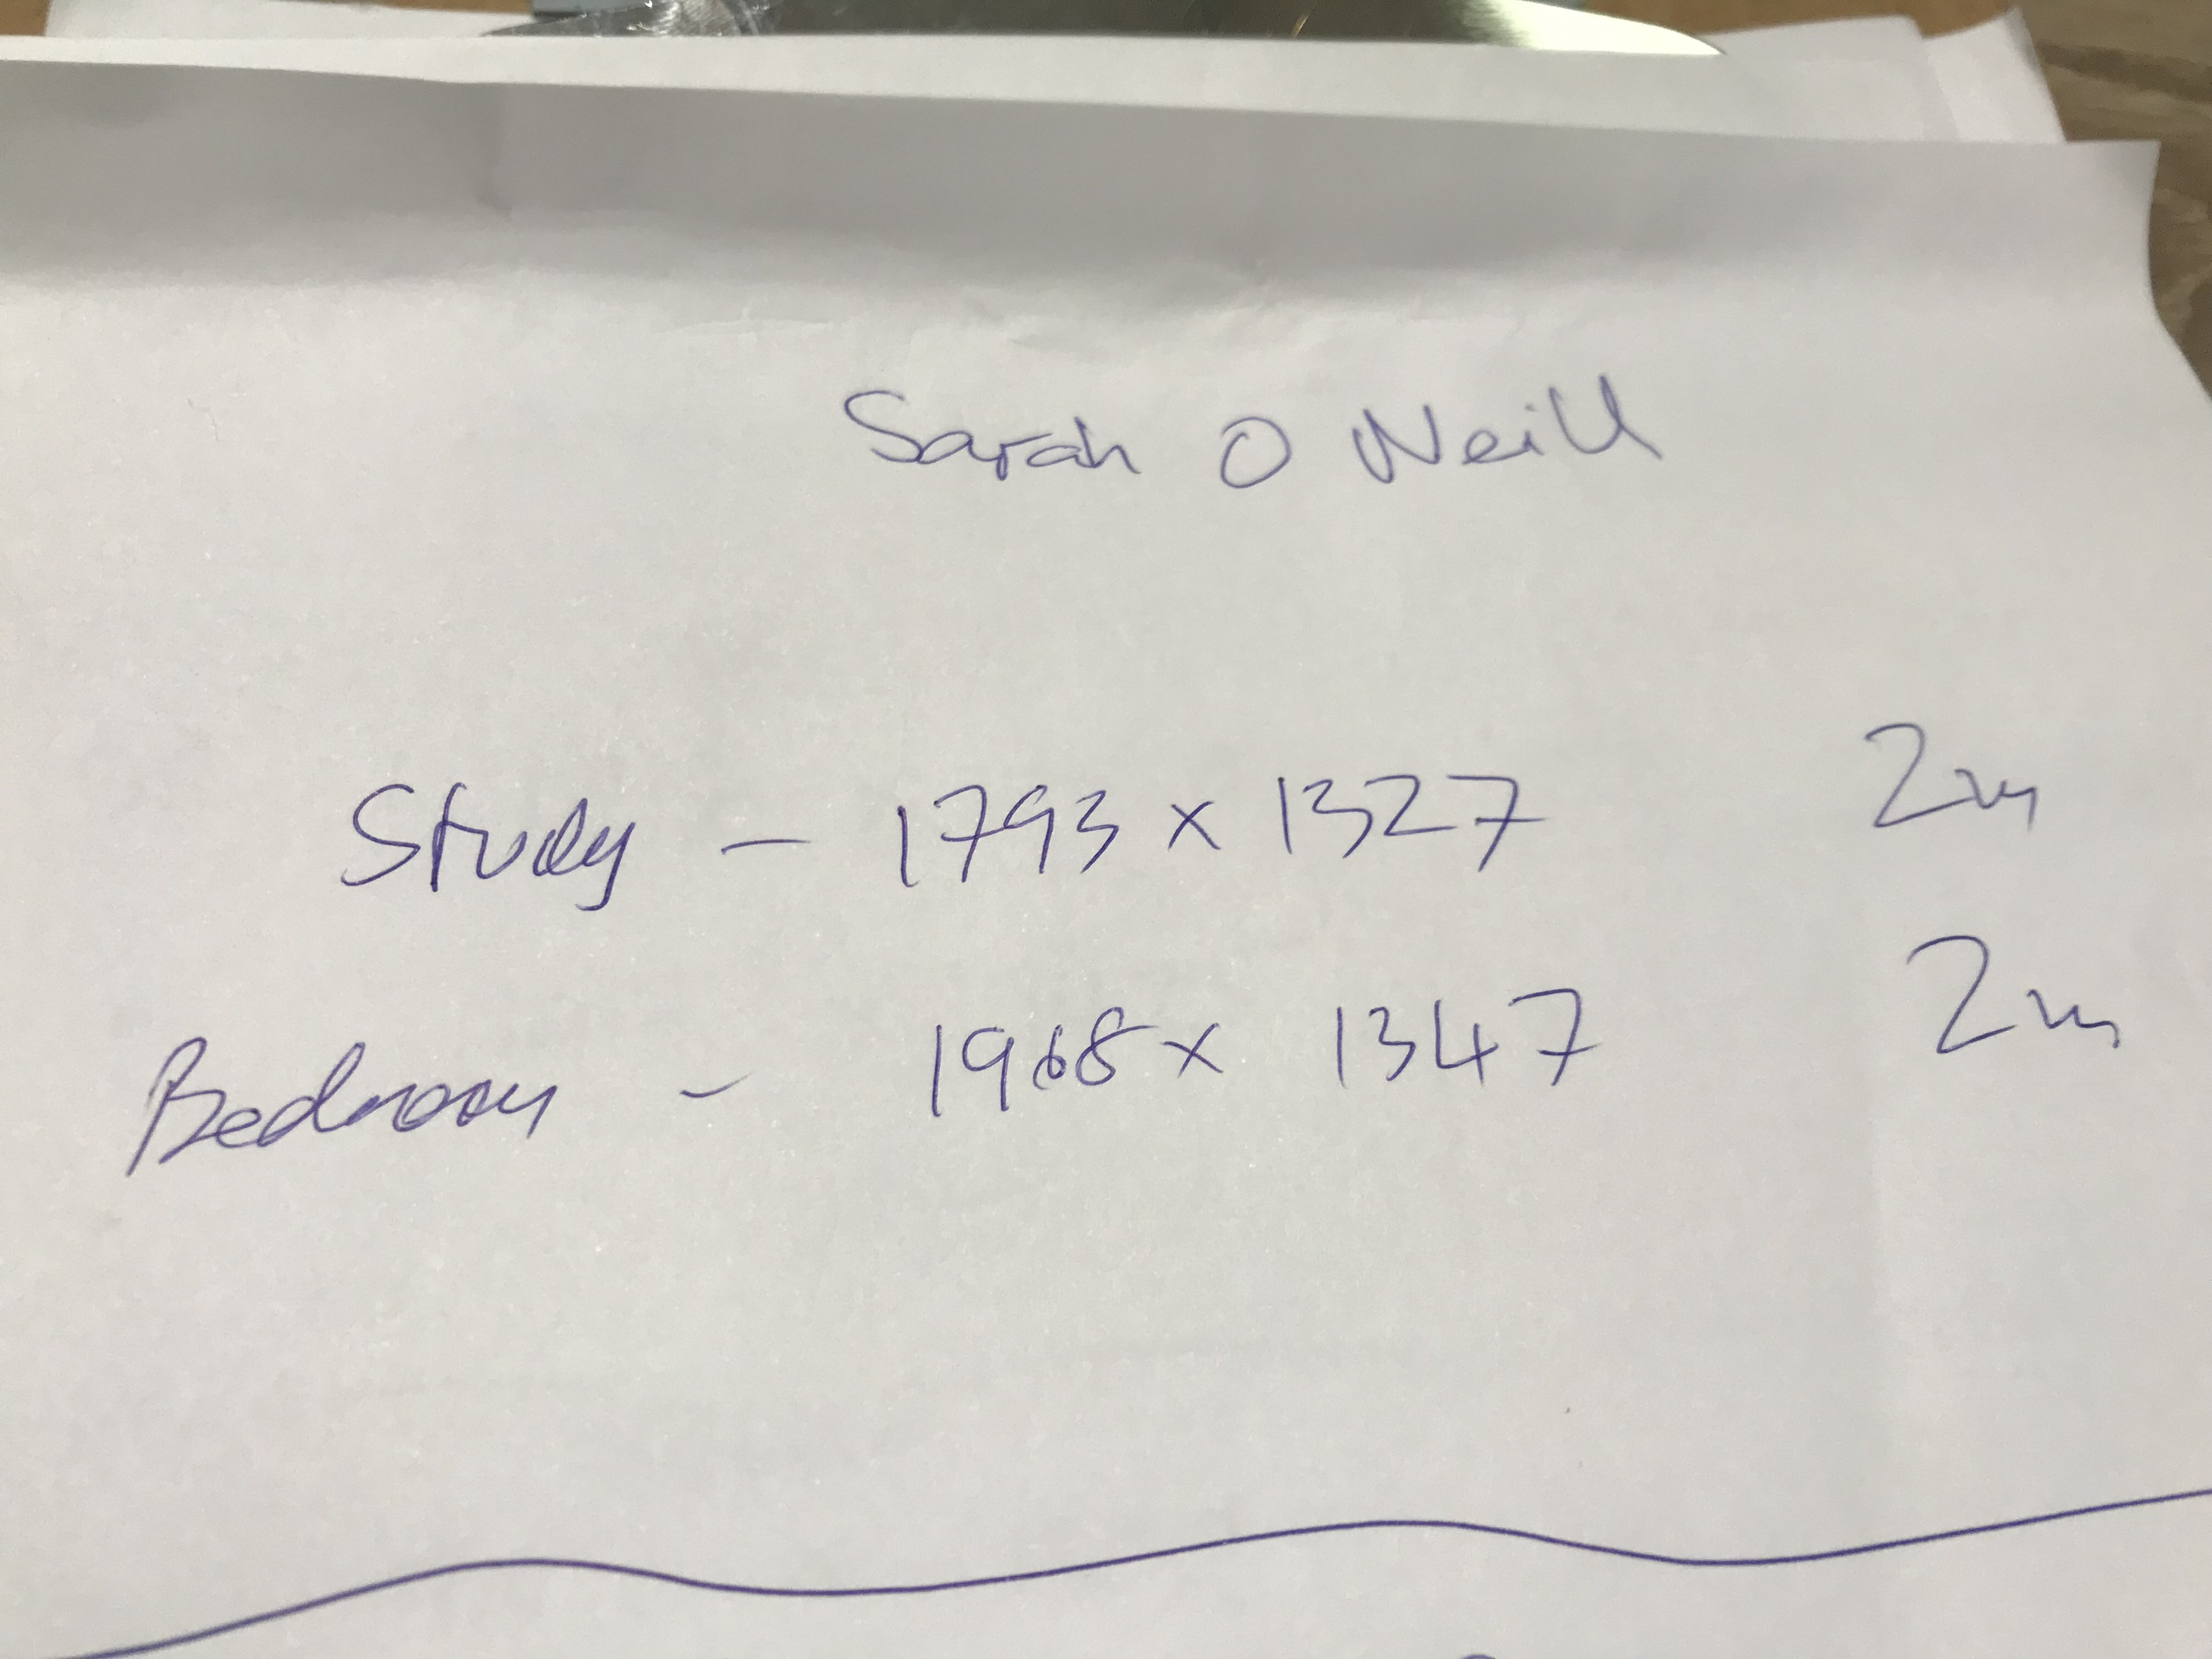 Sarah O Neill
Study - 1793 x 1327 2m
Bedroom - 1968 x 1347 2m